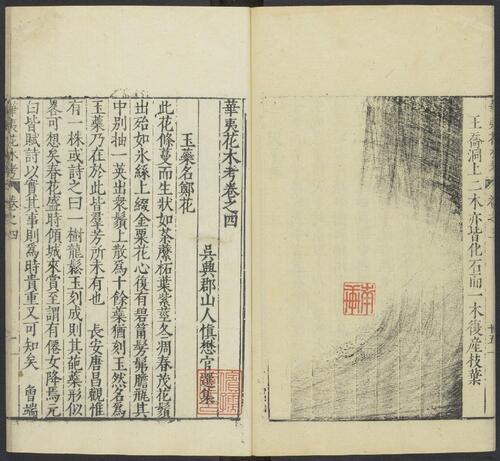 王喬洞上二木亦皆化石而一木復産枝葉
華夷花木考卷之四
吳興郡山人慎懋官選集
玉蘂名鄭花
此花條蔓而生狀如荼䕷柘葉紫莖冬凋春茂花鬚
出殆如氷絲上綴金粟花心復有碧筩鬚髴膽瓶其
中别抽一英出衆鬚上散為十餘蘂猶刻玉然名為
玉蘂乃在於此皆羣芳所未有也 長安唐昌觀惟
有一株或詩之曰一樹瓏鬆玉刻成則其葩蘂形似
畧可想矣春花盛時傾城來賞至謂有僊女降焉元
白皆賦詩以實其事則為時貴重又可知矣 魯端
華夷花木考 卷之四